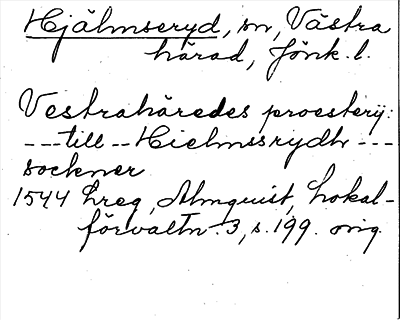 Hjälmseryd, sn, Västra
härad, Jönk. l.
Vestrahäredes proesterij:
---till--Hielmssrydh---
sockner
1544 Lreg, Almquist, Lokal-
förvaltn. 3, s. 199. orig.